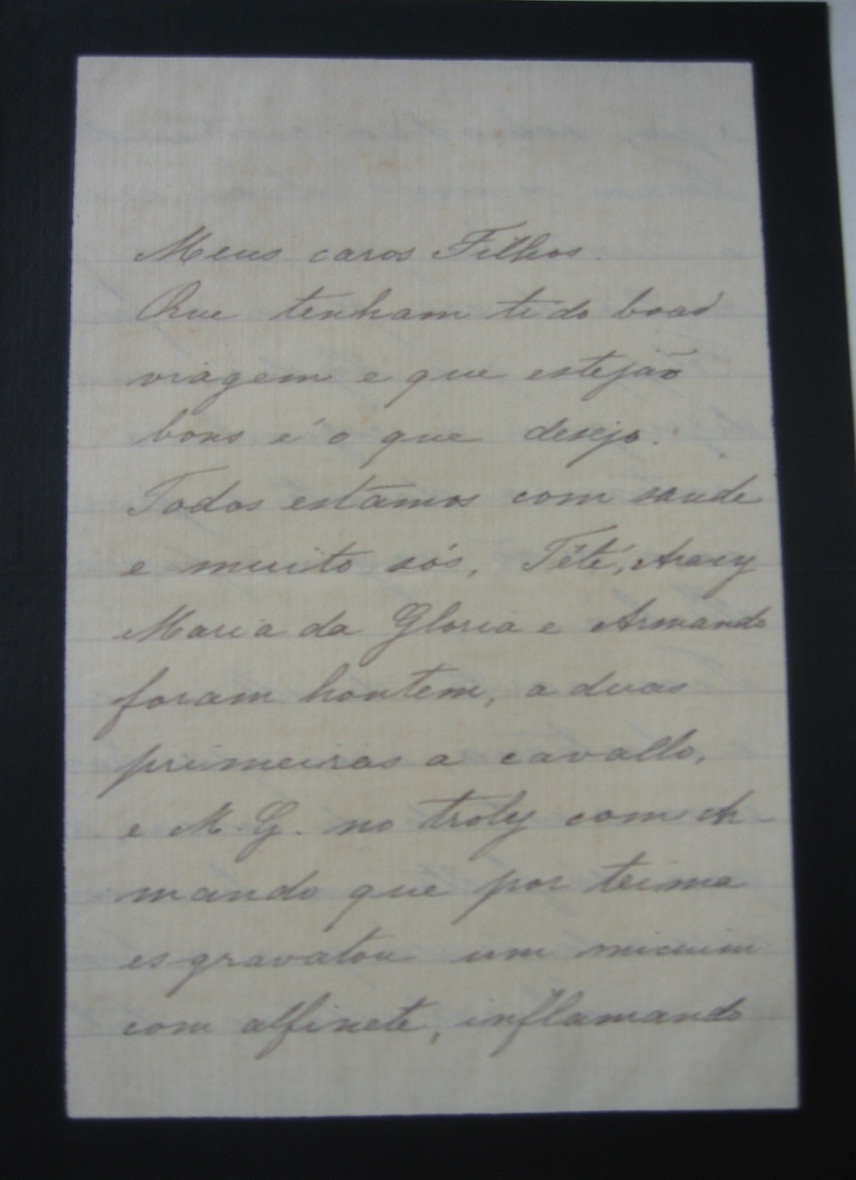 Meus caros Filhos.
Que tenham tido boas
viagem e que estejão
bons é o que desejo.
Todos estamos com saude
e muito sós, Tété, Aracy
Maria da Gloria e Armando
foram hontem, a duas
primeiras a cavallo,
e M. G. no troly com Ar-
mando que por teima
esgravatou um micuim
com alfinete, inflamando